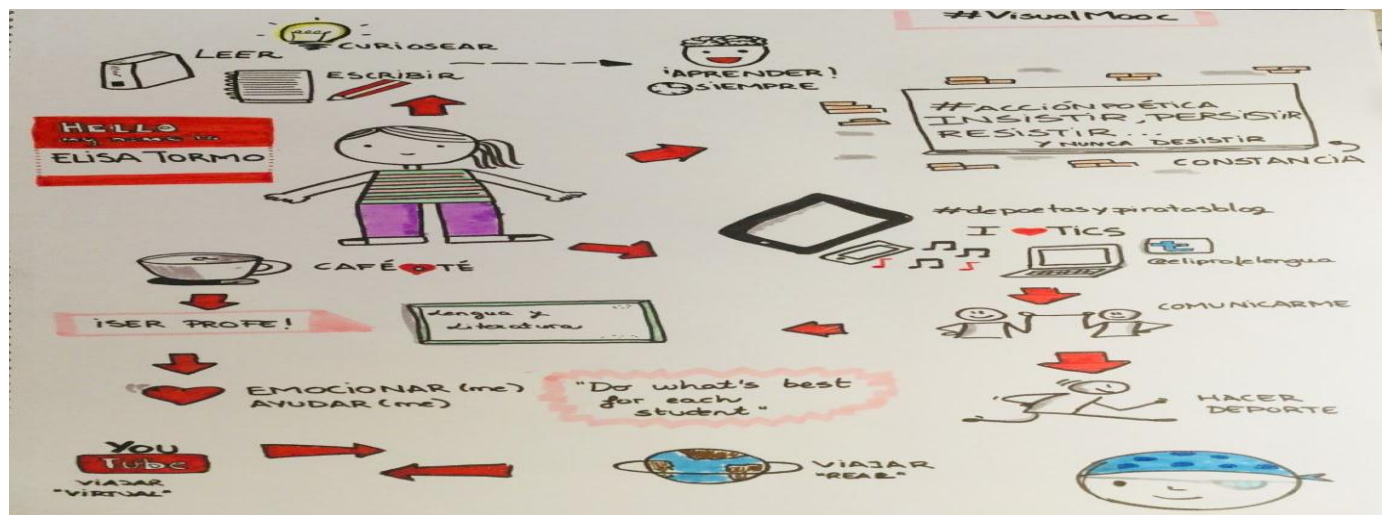 #VisualMooc
LEER
CURIOSEAR
ESCRIBIR
¡APRENDER!
SIEMPRE
HELLO
my name is
ELISA TORMO
#ACCIÓNPOÉTICA
INSISTIR, PERSISTIR
RESISTIR...
Y NUNCA DESISTIR
CONSTANCIA
#depoetasypiratasblog
I TICS
@eliprofelengua
CAFÉ TÉ
¡SER PROFE!
Lengua y
Literatura
COMUNICARME
EMOCIONAR(me)
AYUDAR(me)
"Do what's best
for each
student"
HACER
DEPORTE
YOU
Tube
VIAJAR
"VIRTUAL"
VIAJAR
"REAL"